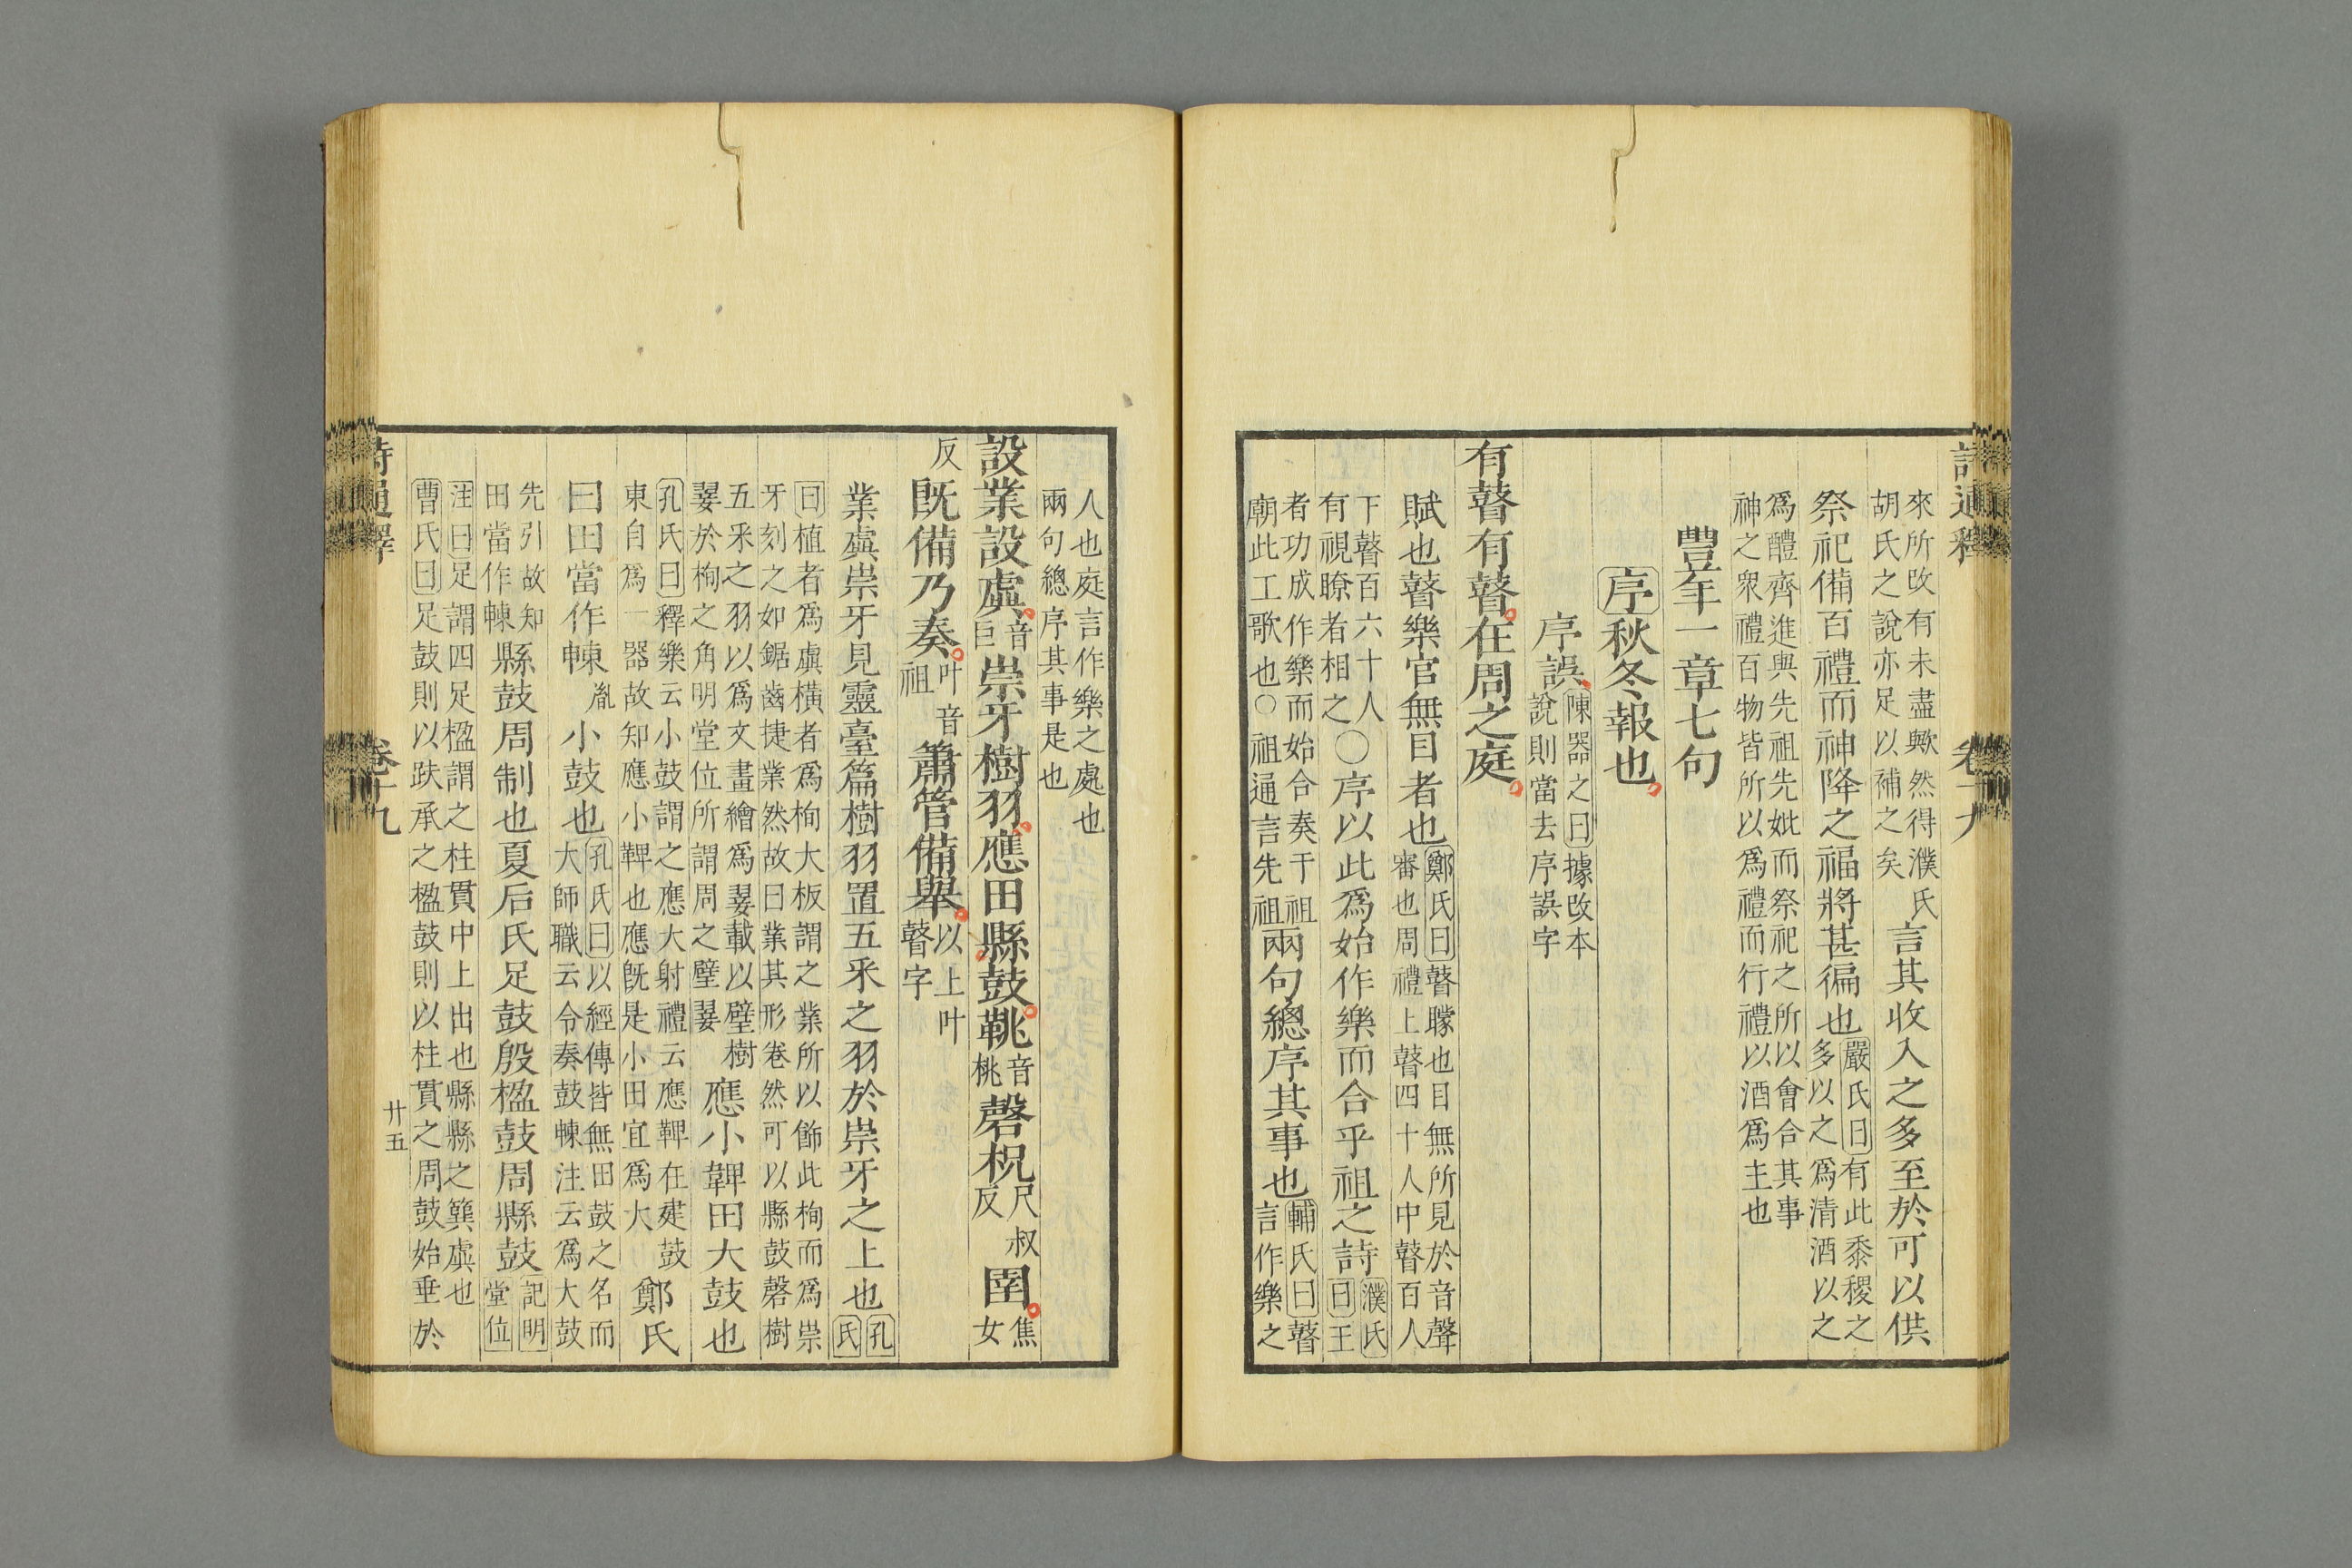 詩通釋 卷十九
來所改有未盡歟然得濮氏
胡氏之說亦足以補之矣
言其收入之多至於可以供
祭祀備百禮而神降之福將甚徧也
嚴氏曰有此黍稷之
多以之爲清酒以之
爲醴齊進與先祖先妣而祭祀之所以會合其事
神之衆禮百物皆所以爲禮而行禮以酒爲主也
豐年一章七句
序秋冬報也
序誤
陳器之曰據改本
說則當去序誤字
有瞽有瞽在周之庭
賦也瞽樂官無目者也
鄭氏曰瞽矇也目無所見於音聲
審也周禮上瞽四十人中瞽百人
下瞽百六十人
有視瞭者相之
○序以此爲始作樂而合乎祖之詩
濮氏
曰王
者功成作樂而始合奏于祖
廟此工歌也○祖通言先祖
兩句總序其事也
輔氏曰瞽
言作樂之
人也庭言作樂之處也
兩句總序其事是也
設業設虡
音
巨
崇牙樹羽應田縣鼓鞉
音
桃
磬柷
尺叔
反
圉
焦
女
反
既備乃奏
叶音
祖
簫管備舉
以上叶
瞽字
業虡崇牙見靈臺篇樹羽置五采之羽於崇牙之上也
孔
氏
曰植者爲虡橫者爲栒大板謂之業所以飾此栒而爲崇
牙刻之如鋸齒捷業然故曰業其形卷然可以縣鼓磬樹
五采之羽以爲文畫繪爲翣載以璧樹
翣於栒之角明堂位所謂周之璧翣
應小鞞田大鼓也
孔氏曰釋樂云小鼓謂之應大射禮云應鞞在建鼓
東自爲一器故知應小鞞也應既是小田宜爲大
鄭氏
曰田當作㯥
胤
小鼓也
孔氏曰以經傳皆無田鼓之名而
大師職云令奏鼓㯥注云爲大鼓
先引故知
田當作㯥
縣鼓周制也夏后氏足鼓殷楹鼓周縣鼓
記明
堂位
注曰足謂四足楹謂之柱貫中上出也縣縣之簨虡也
曹氏曰足鼓則以趺承之楹鼓則以柱貫之周鼓始垂於
詩通釋 卷十九 廿五